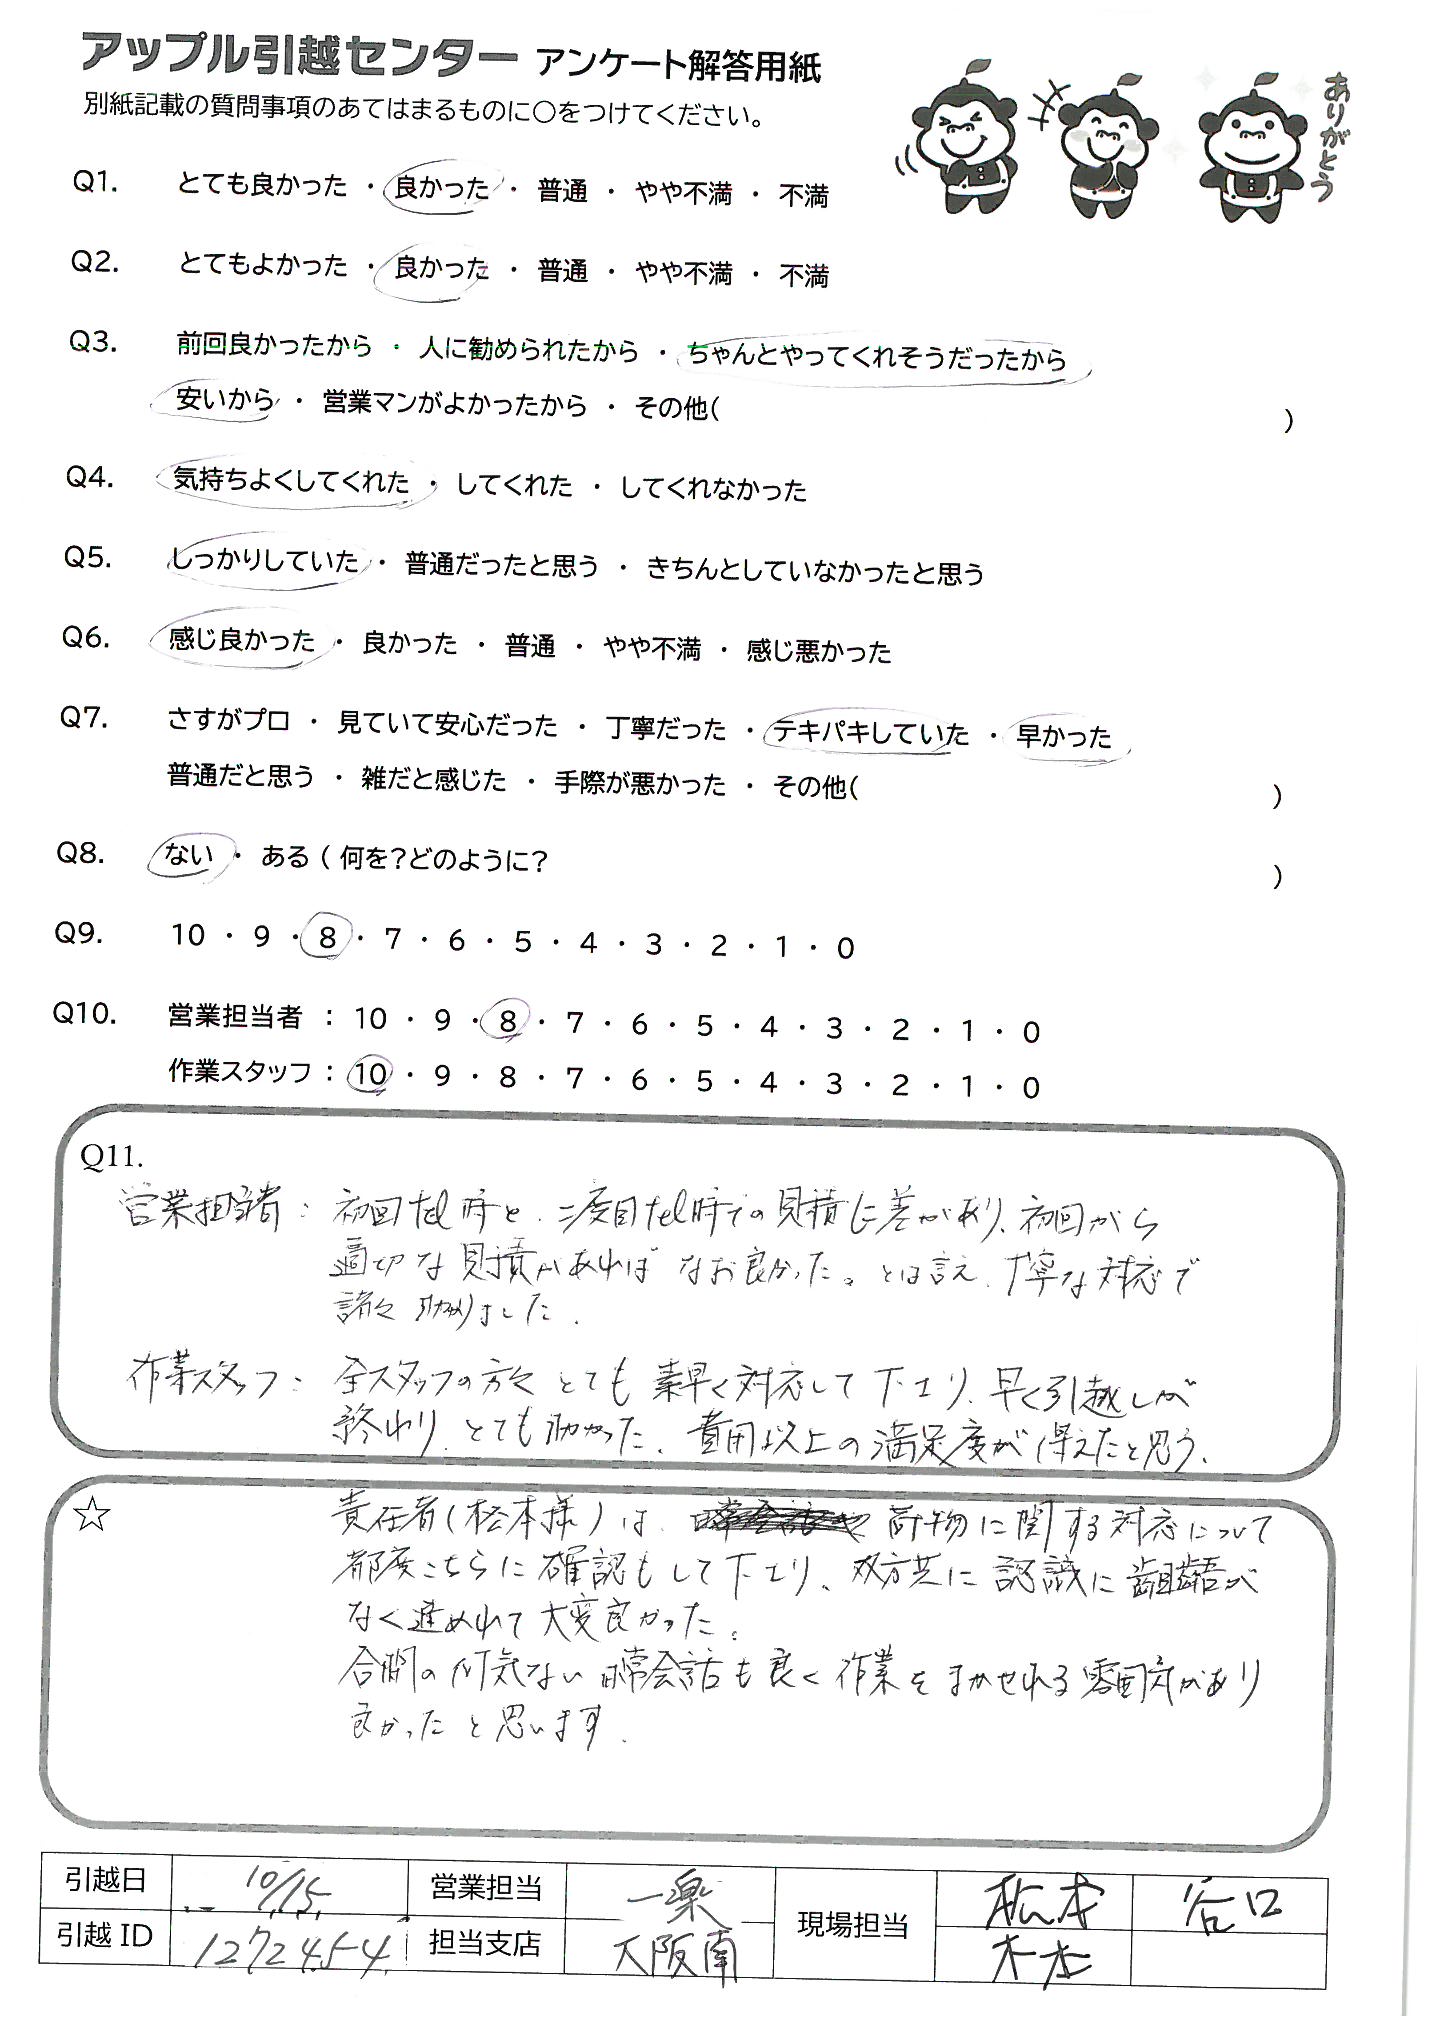 アップル引越センター アンケート解答用紙
ありがとう
別紙記載の質問事項のあてはまるものに○をつけてください。
Q1. とても良かった ・ 良かった ・ 普通 ・ やや不満 ・ 不満
Q2. とてもよかった ・ 良かった ・ 普通 ・ やや不満 ・ 不満
Q3. 前回良かったから ・ 人に勧められたから ・ ちゃんとやってくれそうだったから
安いから ・ 営業マンがよかったから ・ その他( )
Q4. 気持ちよくしてくれた ・ してくれた ・ してくれなかった
Q5. しっかりしていた ・ 普通だったと思う ・ きちんとしていなかったと思う
Q6. 感じ良かった ・ 良かった ・ 普通 ・ やや不満 ・ 感じ悪かった
Q7. さすがプロ ・ 見ていて安心だった ・ 丁寧だった ・ テキパキしていた ・ 早かった
普通だと思う ・ 雑だと感じた ・ 手際が悪かった ・ その他( )
Q8. ない ・ ある ( 何を?どのように? )
Q9. 10 ・ 9 ・ 8 ・ 7 ・ 6 ・ 5 ・ 4 ・ 3 ・ 2 ・ 1 ・ 0
Q10. 営業担当者 : 10 ・ 9 ・ 8 ・ 7 ・ 6 ・ 5 ・ 4 ・ 3 ・ 2 ・ 1 ・ 0
作業スタッフ : 10 ・ 9 ・ 8 ・ 7 ・ 6 ・ 5 ・ 4 ・ 3 ・ 2 ・ 1 ・ 0
Q11.
営業担当者 : 初回tel時と、二度目tel時での見積に差があり、初回から
適切な見積があればなお良かった。とは言え、丁寧な対応で
諸々助かりました.
作業スタッフ : 全スタッフの方々とても素早く対応して下さり、早く引越しが
終わり、とても助かった、費用以上の満足度が得えたと思う、
☆ 責任者(松本様)は、荷物に関する対応について
都度こちらに確認もして下さり、双方共に認識に齟齬が
なく進めれて大変良かった。
合間の何気ない日常会話も良く作業をまかせれる雰囲気があり
良かったと思います.
引越日 10/15 営業担当 一楽 現場担当 松本 谷口
引越 ID 1272454 担当支店 大阪南 木本